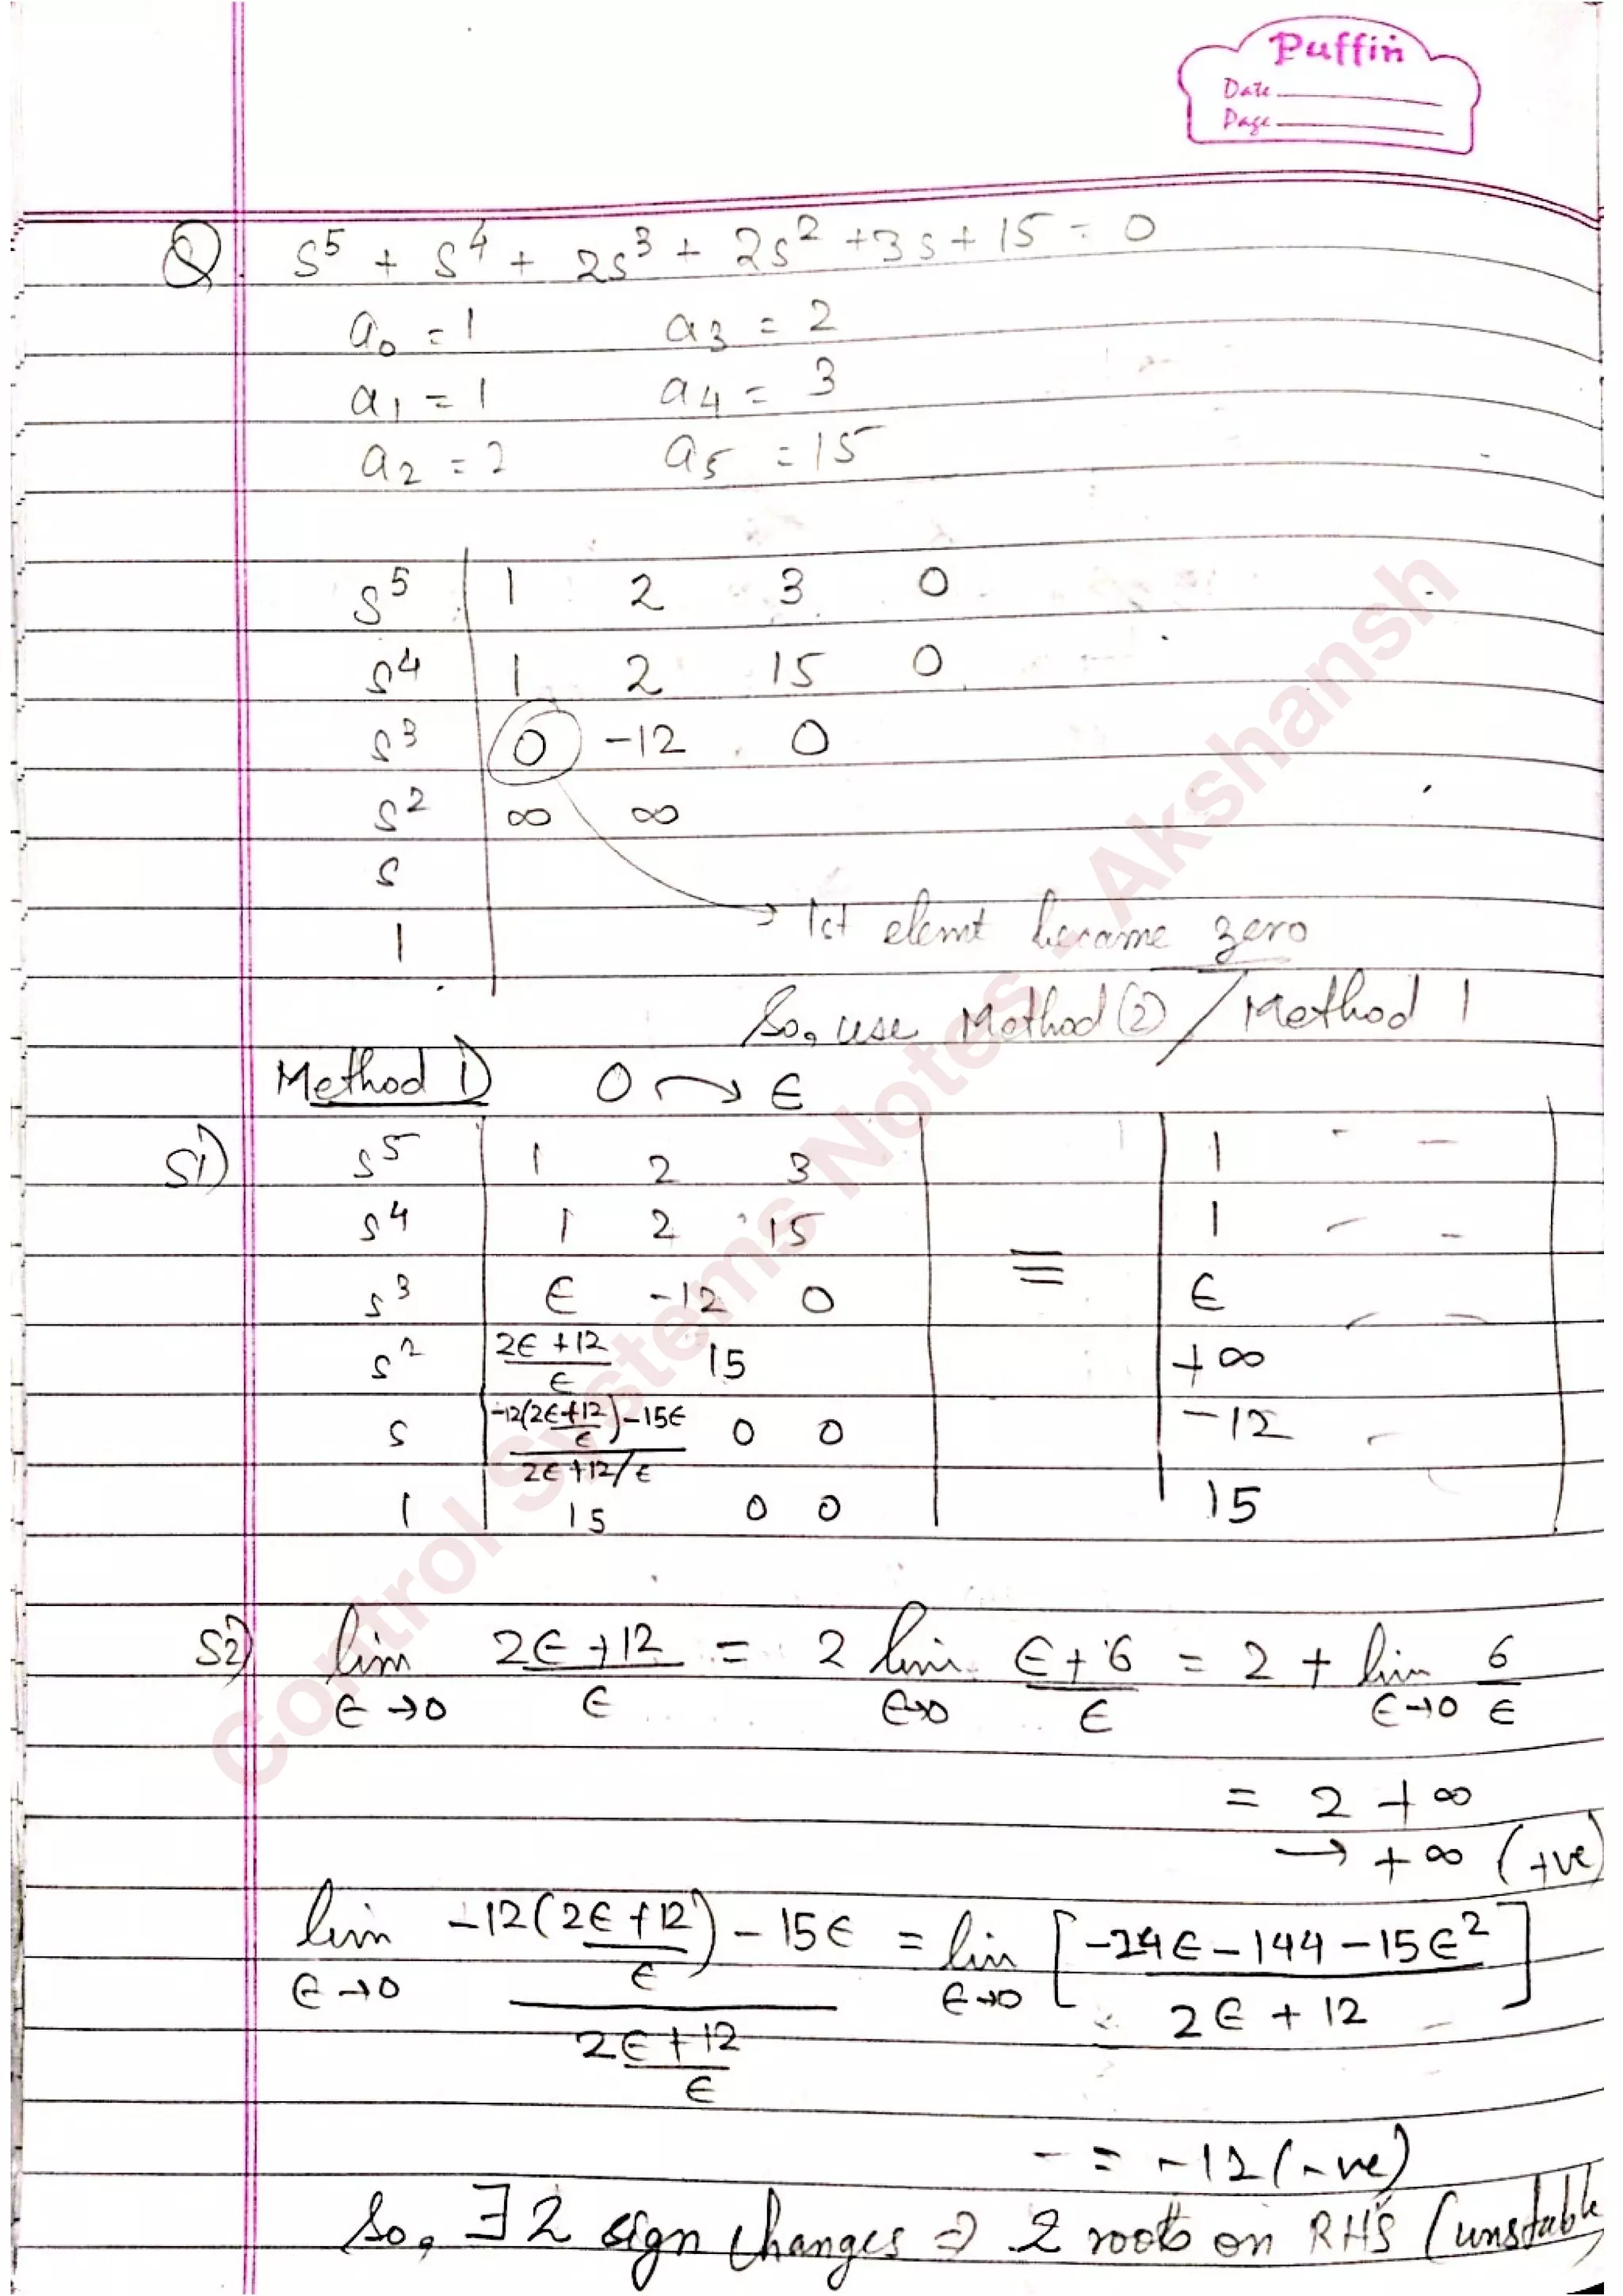 Puffin
Date
Page
Q s⁵ + s⁴ + 2s³ + 2s² + 3s + 15 = 0
a₀ = 1 a₃ = 2
a₁ = 1 a₄ = 3
a₂ = 2 a₅ = 15
s⁵ | 1 2 3 0
s⁴ | 1 2 15 0
s³ | 0 -12 0
s² | ∞ ∞
s |
1 |
→ 1st elemt became zero
So, use Method (2) / Method 1
Method 1) 0 → ϵ
S1) s⁵ | 1 2 3 | | 1 - - |
s⁴ | 1 2 15 | | 1 - - |
s³ | ϵ -12 0 | ≡ | ϵ - - |
s² | (2ϵ+12)/ϵ 15 | | +∞ |
s | (-12((2ϵ+12)/ϵ) - 15ϵ)/(2ϵ+12/ϵ) 0 0 | | -12 - |
1 | 15 0 0 | | 15 |
S2) lim ϵ→0 (2ϵ+12)/ϵ = 2 lim ϵ→0 (ϵ+6)/ϵ = 2 + lim ϵ→0 6/ϵ
= 2 + ∞
→ +∞ (+ve)
lim ϵ→0 (-12((2ϵ+12)/ϵ) - 15ϵ)/((2ϵ+12)/ϵ) = lim ϵ→0 [(-24ϵ - 144 - 15ϵ²)/(2ϵ + 12)]
- = -12 (-ve)
So, ∃ 2 sign changes ⇒ 2 roots on RHS (unstable
Control Systems Notes - Akshansh